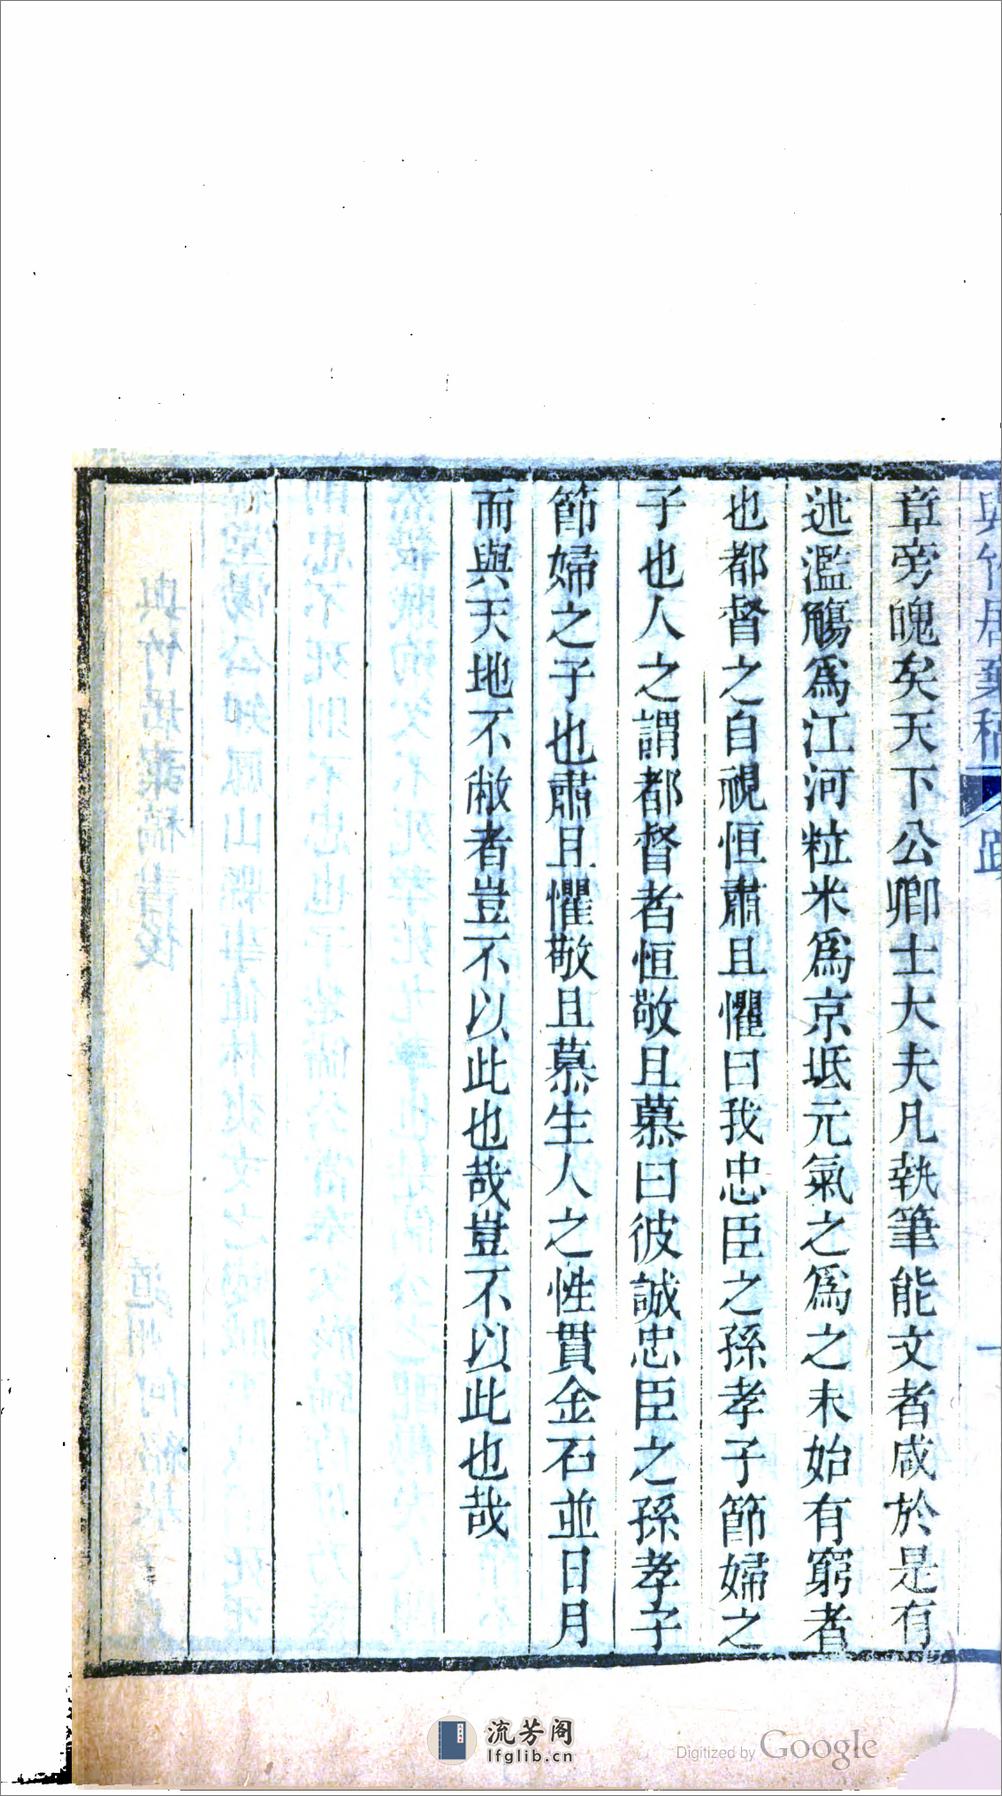 章旁魄矣天下公卿士大夫凡執筆能文者咸於是有
述濫觴爲江河粒米爲京坻元氣之爲之未始有窮者
也都督之自視恒肅且懼曰我忠臣之孫孝子節婦之
子也人之謂都督者恒敬且慕曰彼誠忠臣之孫孝子
節婦之子也肅且懼敬且慕生人之性貫金石並日月
而與天地不敝者豈不以此也哉豈不以此也哉
流芳阁
lfglib.cn
Digitized by Google